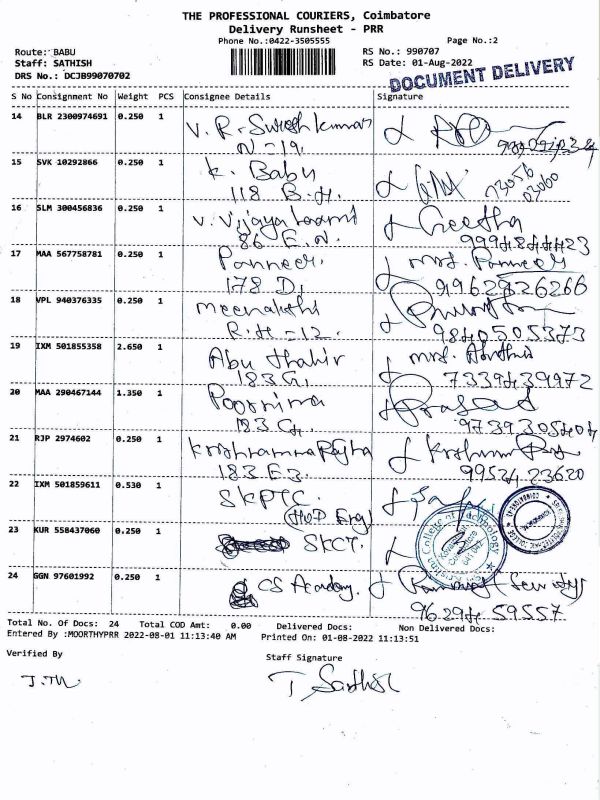 THE PROFESSIONAL COURIERS, Coimbatore
Delivery Runsheet - PRR
Phone No.:0422-3505555 Page No.:2
Route: BABU RS No.: 990707
Staff: SATHISH RS Date: 01-Aug-2022
DRS No.: DCJB99070702
DOCUMENT DELIVERY
S No Consignment No Weight PCS Consignee Details Signature
14 BLR 2300974691 0.250 1 V. R. Sureshkumar
N-19.
15 SVK 10292866 0.250 1 K. Babu
118 B.H. 73056 03060
16 SLM 300456836 0.250 1 V. Vijayalaxmi Geetha
86 E.N.
17 MAA 567758781 0.250 1 Panneer. Mrs. Panneer
178 D, 9962926266
18 VPL 940376335 0.250 1 meenakshi
R.H-12. 9840505373
19 IXM 501855358 2.650 1 Abu thahir Mrs.
183G. 7339439972
20 MAA 290467144 1.350 1 Poornima Prasad
183 G. 9739305404
21 RJP 2974602 0.250 1
183 E3. 99524 23620
22 IXM 501859611 0.530 1 SKPTC.
(HOD Eng)
23 KUR 558437060 0.250 1 SKCT.
College of Technology
24 GGN 97601992 0.250 1 CS Academy. Security
96294 59557
Total No. Of Docs: 24 Total COD Amt: 0.00 Delivered Docs: Non Delivered Docs:
Entered By :MOORTHYPRR 2022-08-01 11:13:40 AM Printed On: 01-08-2022 11:13:51
Verified By Staff Signature
T. Sathish